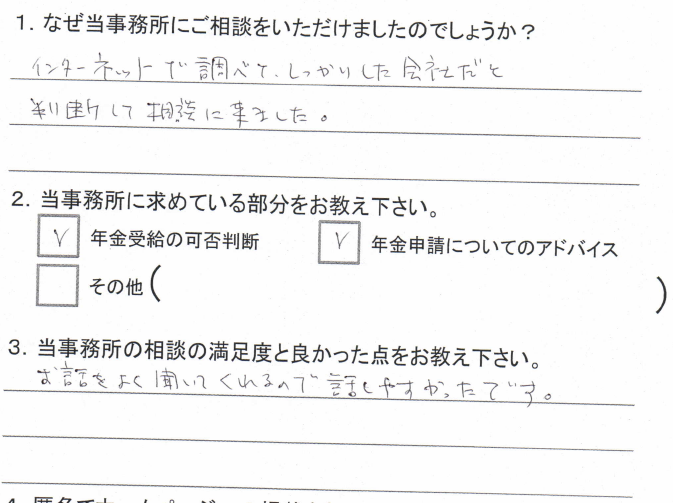 1. なぜ当事務所にご相談をいただけましたのでしょうか？
インターネットで調べて、しっかりした会社だと
判断して相談に来ました。
2. 当事務所に求めている部分をお教え下さい。
☑ 年金受給の可否判断 ☑ 年金申請についてのアドバイス
☐ その他（ ）
3. 当事務所の相談の満足度と良かった点をお教え下さい。
お話をよく聞いてくれるので話しやすかったです。